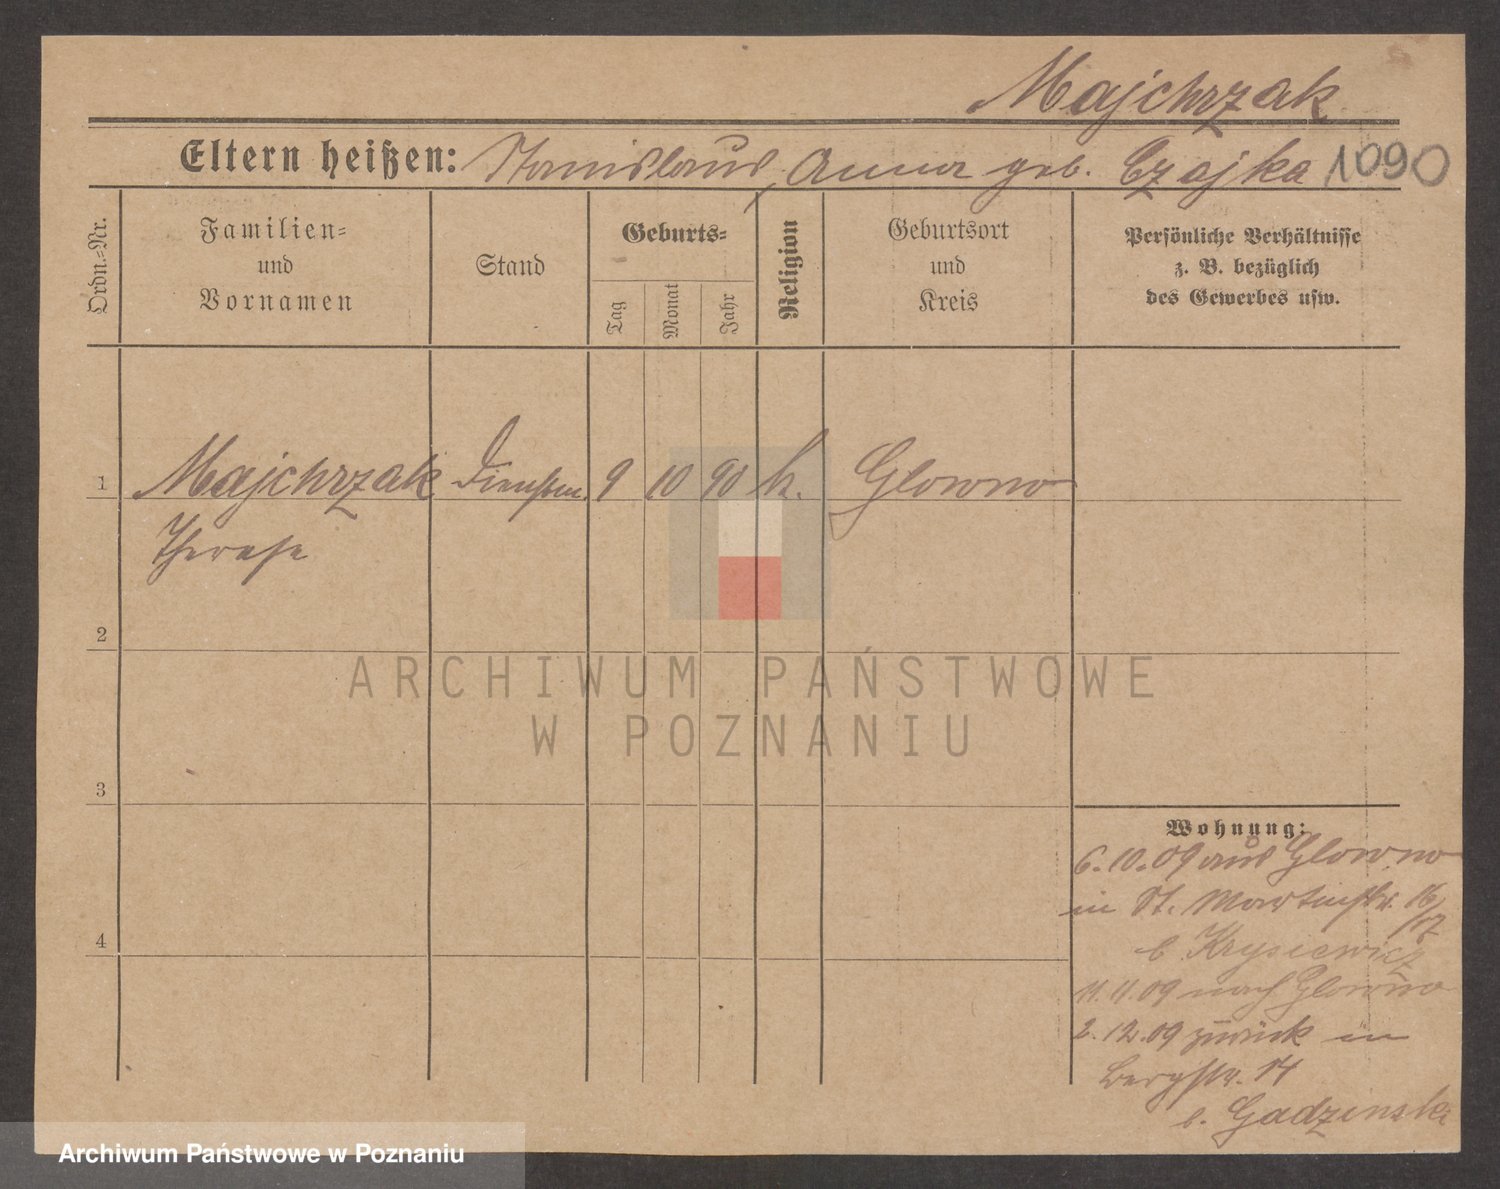 Majchrzak
Eltern heißen: Stanislaus, Anna geb. Czajka 1090
Ordn.-Nr.
Familien-
und
Vornamen
Stand
Geburts-
Tag
Monat
Jahr
Religion
Geburtsort
und
Kreis
Persönliche Verhältnisse
z. B. bezüglich
des Gewerbes usw.
1 Majchrzak Dienstm. 9 10 90 k. Glowno
Therese
2
3
4
Wohnung:
6.10.09 aus Glowno
in St. Martinstr. 16/17
b. Krysiewicz
11.11.09 nach Glowno
2.12.09 zurück in
Bergstr. 14
b. Gadzinski
ARCHIWUM PAŃSTWOWE
W POZNANIU
Archiwum Państwowe w Poznaniu